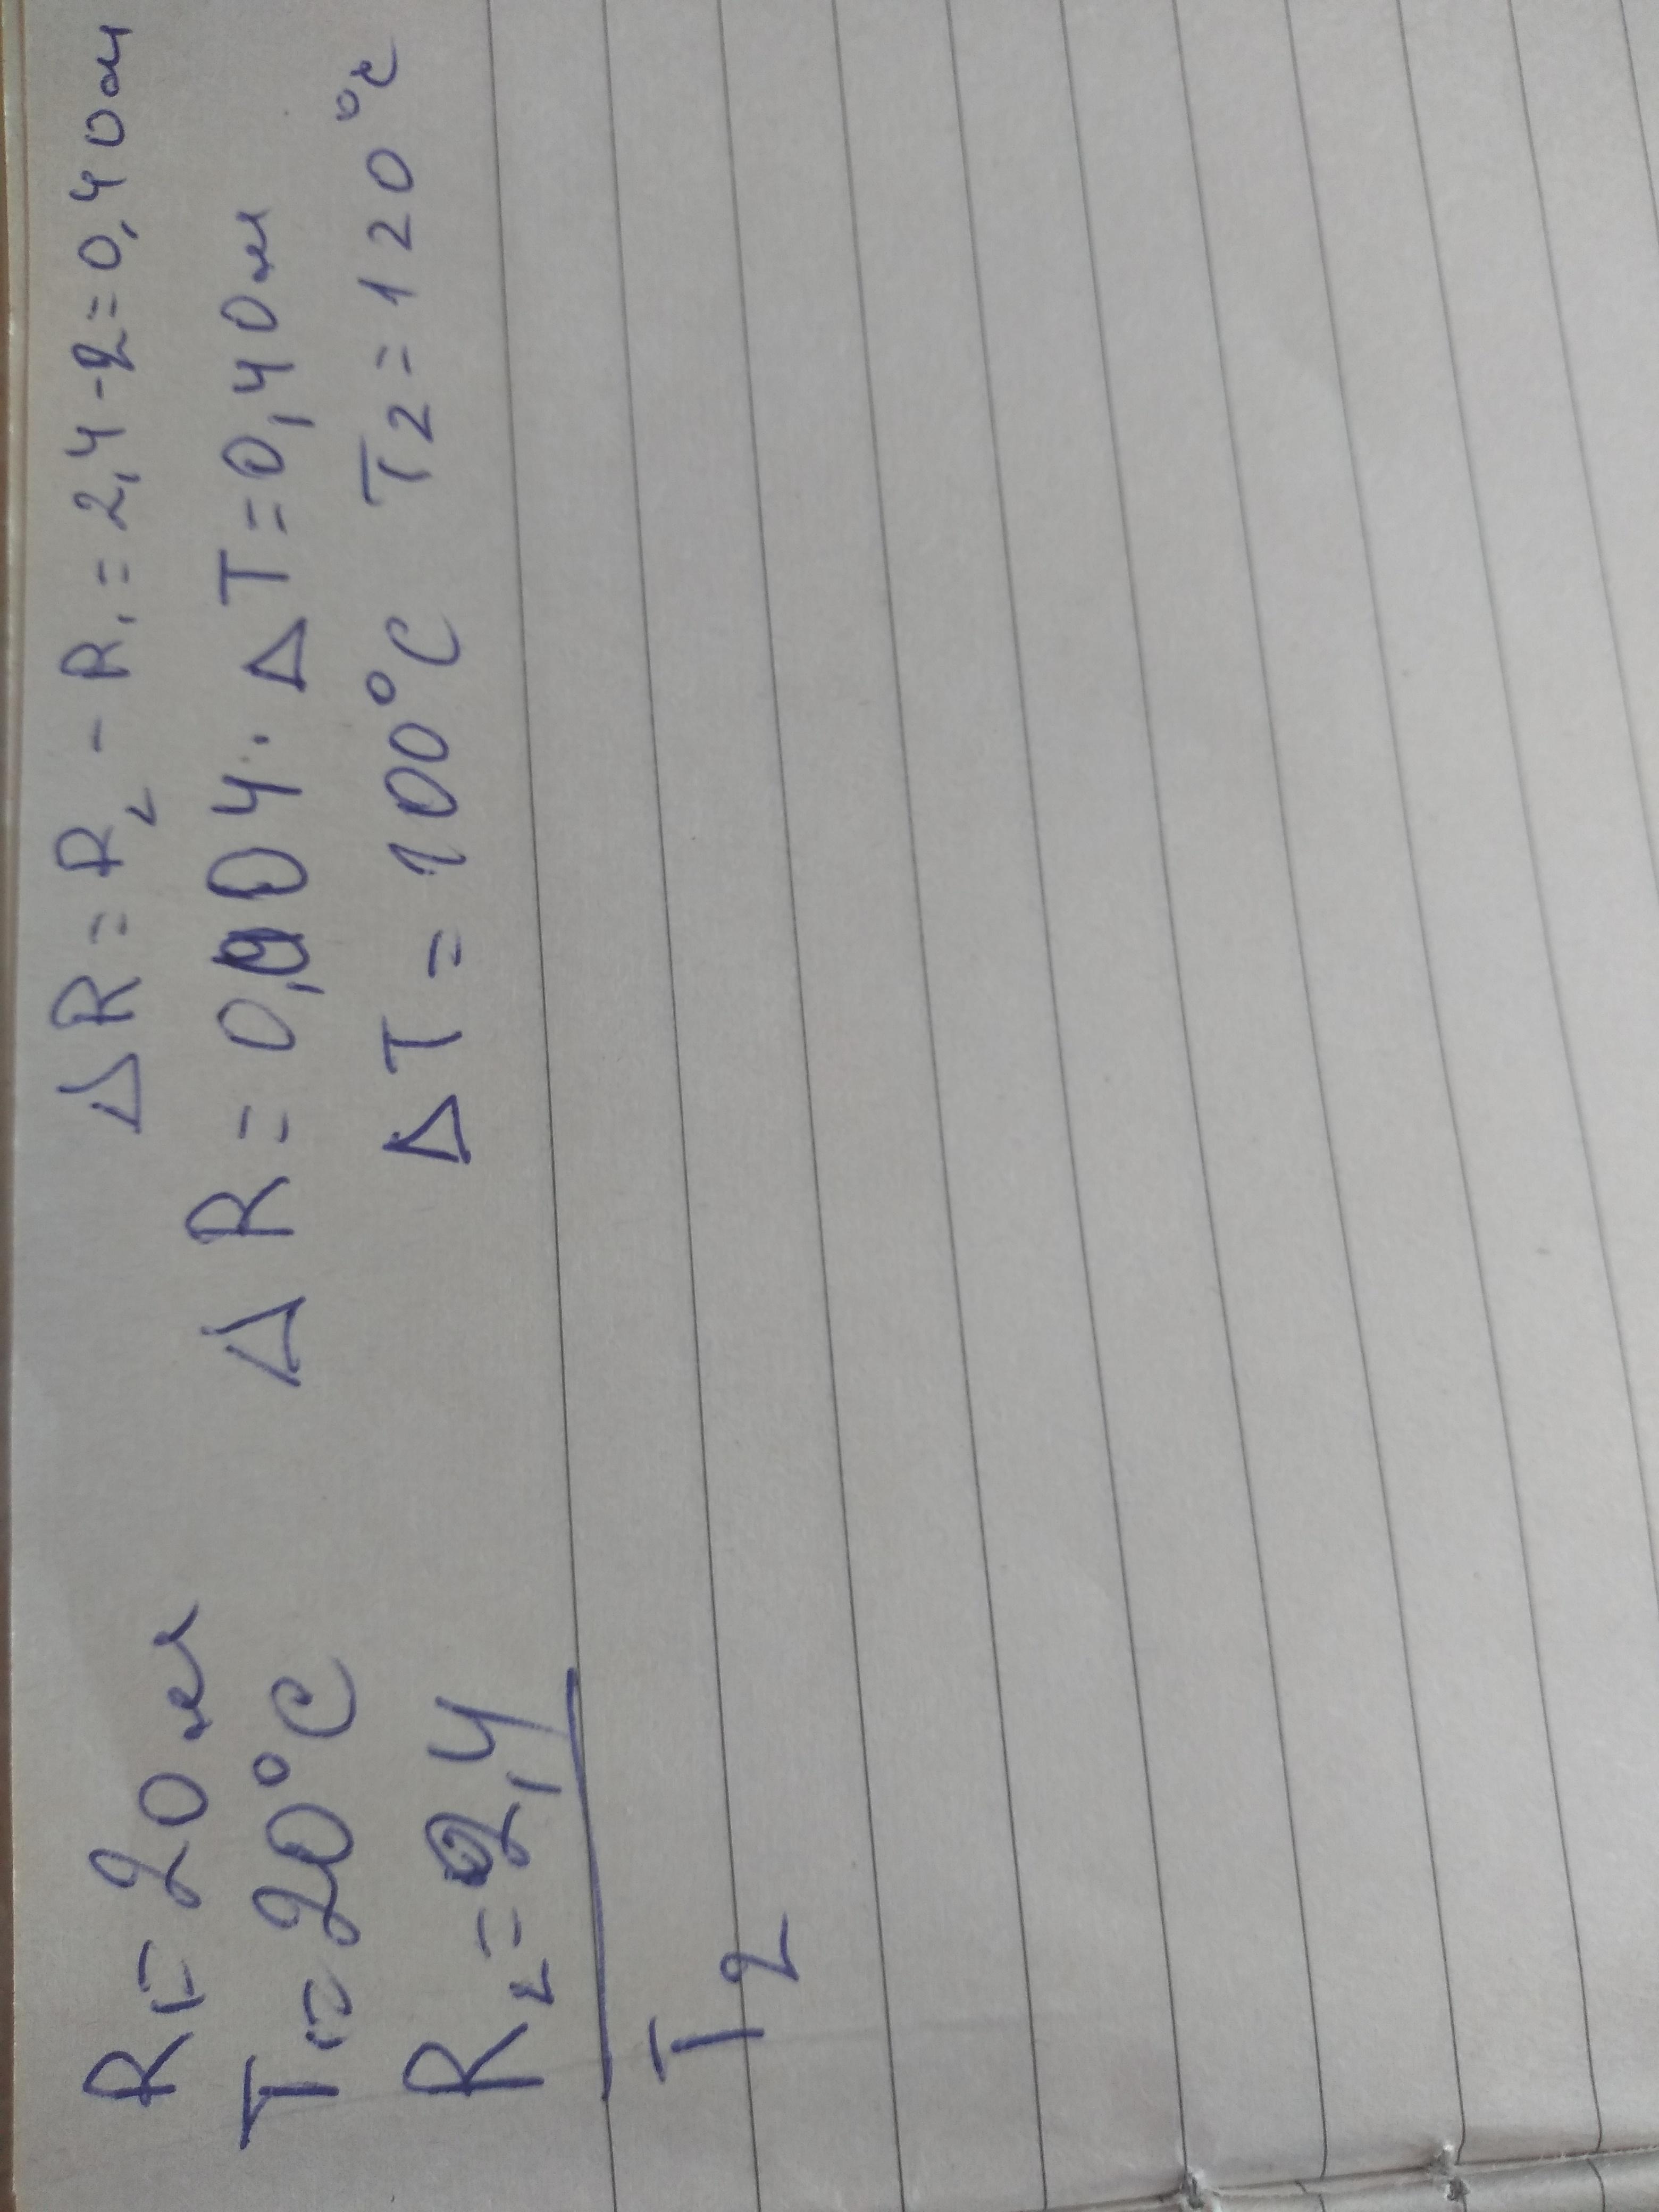 R₁=2Ом
T₁=20°C
R₂=2,4
T₂
ΔR=R₂-R₁=2,4-2=0,4Ом
ΔR=0,004·ΔT=0,4Ом
ΔT=100°C T₂=120°C